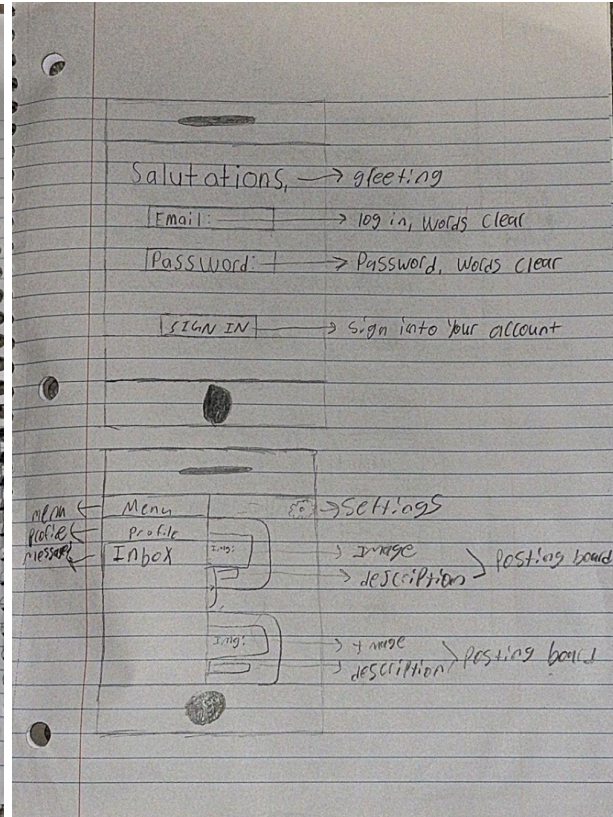 Salutations, → greeting
Email: → log in, words clear
Password: → Password, words clear
SIGN IN → sign into your account
menu ← Menu → Settings
profile ← Profile
messages ← Inbox
Img: → Image
→ description
Posting board
Img: → Image
→ description
Posting board